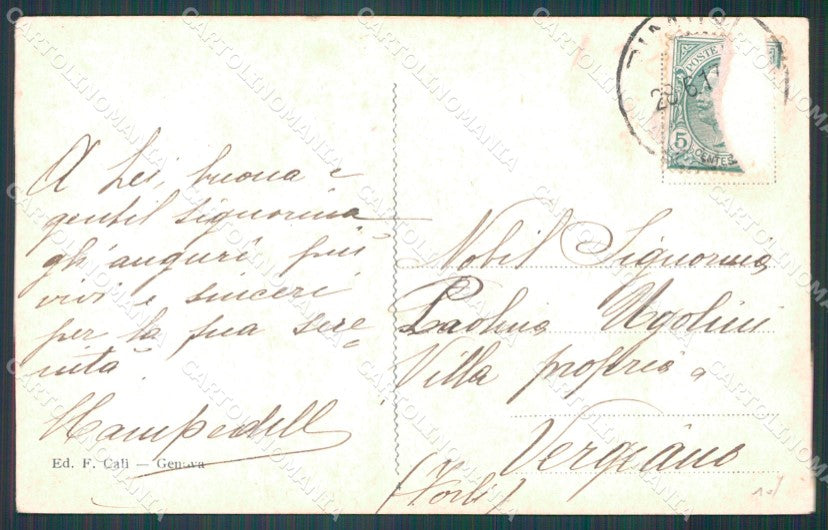 A Lei, buona e
gentil signorina
gli auguri più
vivi e sinceri
per la sua sere=
nità.
Ed. F. Calì — Genova
POSTE
28.6.1
5
CENTES
Nobil Signorina
Paolina Ugolini
Villa propria a
Vergiano
(Forlì)
CARTOLINOMANIA